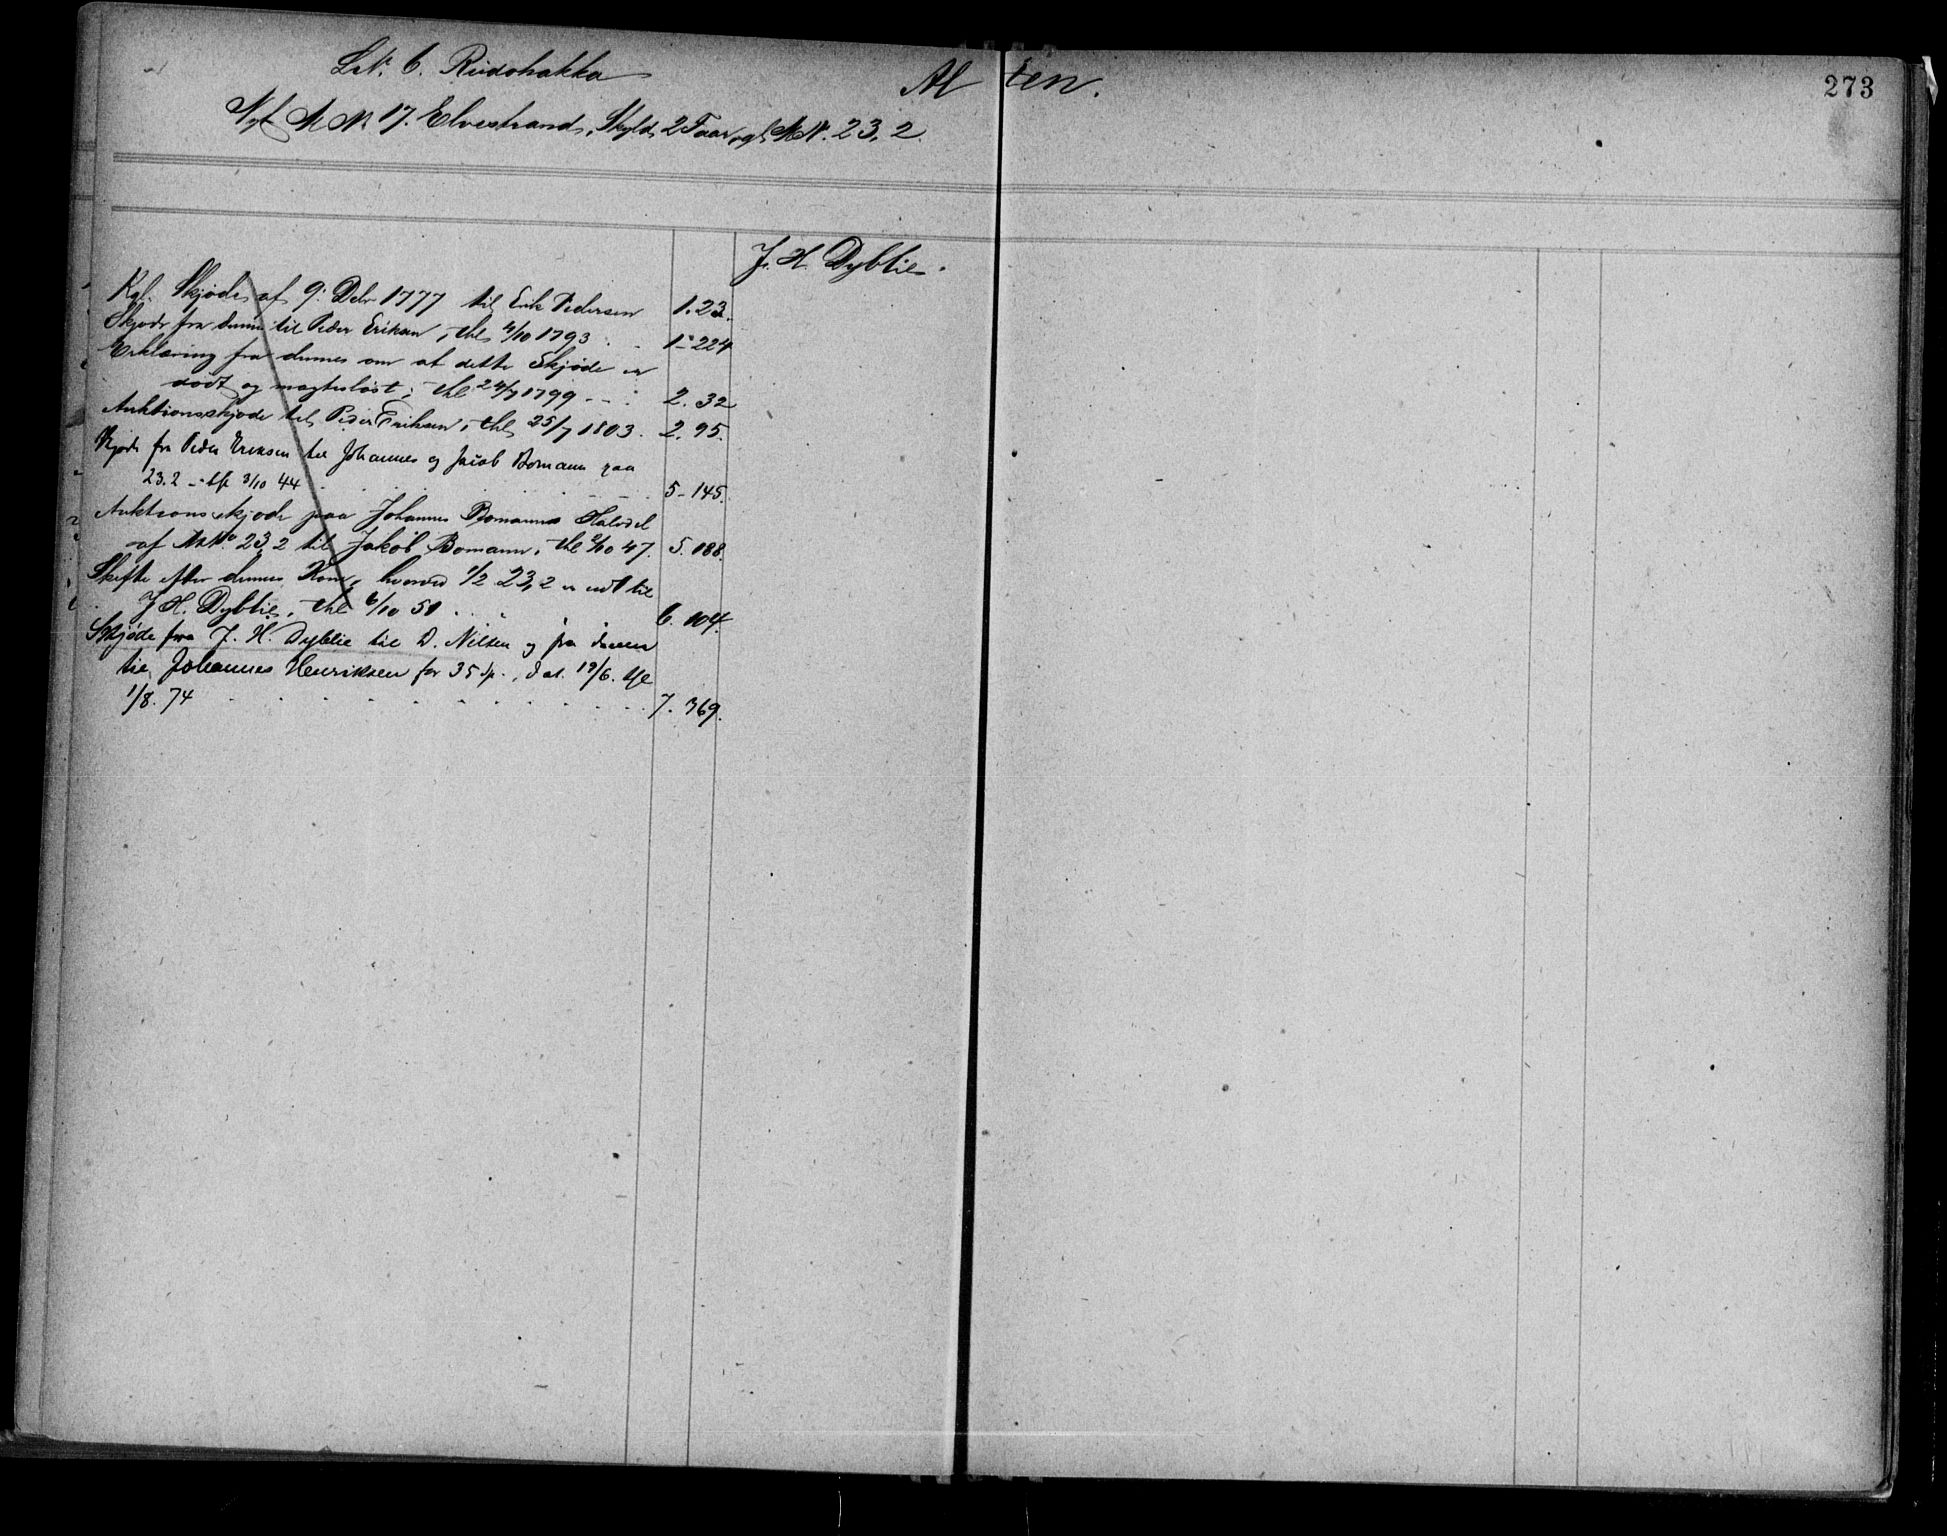 L.N. 6. Riidohakka
Alten.
273
Nyt M N 17. Elvestrand, Skyld 2 Faar, gl. M.N. 23,2.
J. H. Dyblie.
Kgl. Skjøde af 9. Debr 1777 til Erik Pedersen 1. 23.
Skjøde fra denne til Peder Eriksen, thl 4/10 1793 . . 1 - 224
Erklæring fra dennes om at dette Skjøde er
dødt og magtesløst, thl 24/7 1799 - - : 2. 32
Auktionsskjøde til Peder Eriksen, thl 25/7 1803. 2. 95.
Skjøde fra Peder Eriksen til Johannes og Jacob Bomann paa
23.2 - tgl 3/10 44 . . . . . . . 5 - 145.
Auktionsskjøde paa Johannes Bomanns Halvdel
af M.No. 23,2 til Jakob Bomann, thl /10 47. 5. 188.
Skifte efter dennes Kone, hvorved 1/2 23,2 er udl til
J. H. Dyblie, thl 6/10 51 . . . 6. 104.
Skjøde fra J. H. Dyblie til D. Nilsen og fra denne
til Johannes Henriksen for 35 Sp., dat. 19/6. tgl
1/8. 74 . . . . . . . . . . 7. 369.